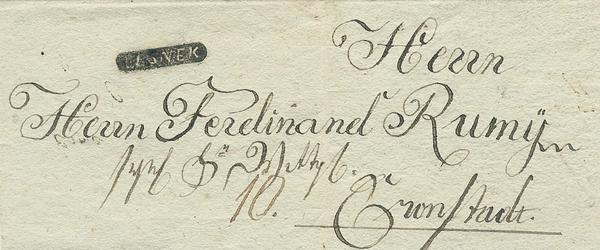 LASNEK
Herrn
Herrn Ferdinand Rumÿ
10.
Cronstadt.